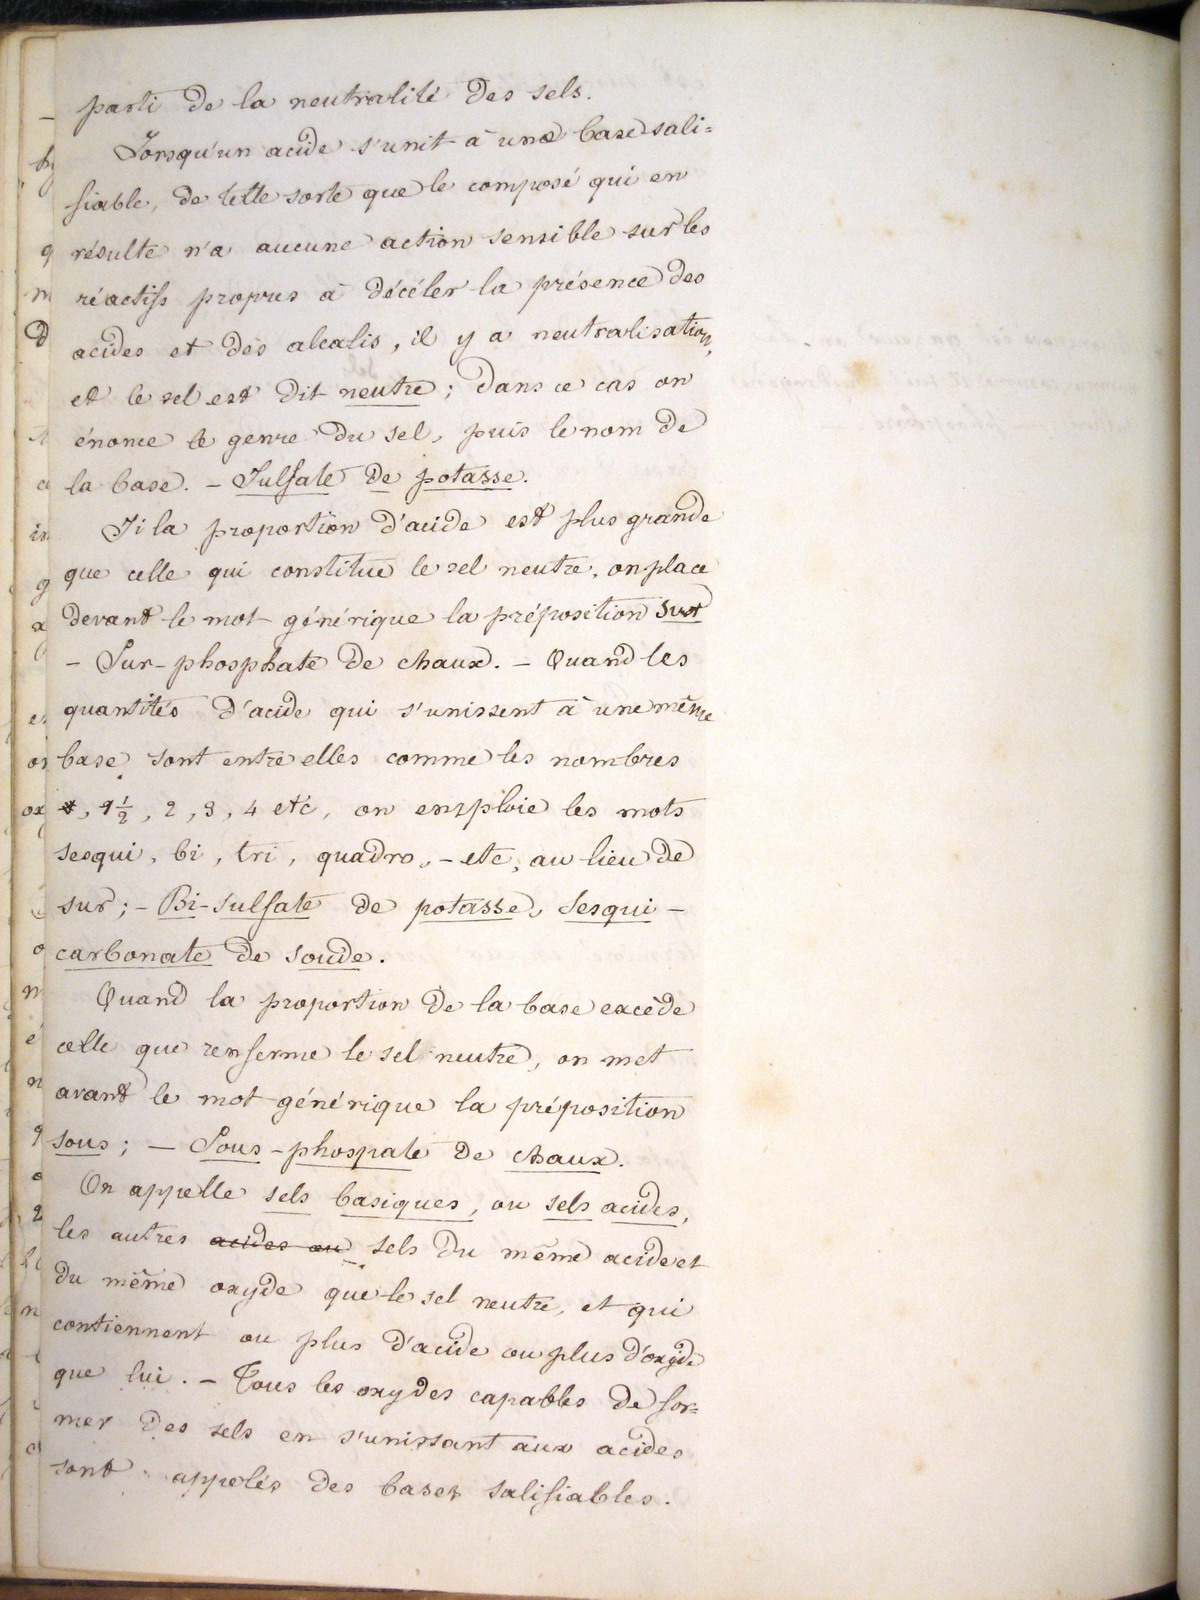 parti de la neutralité des sels.
Lorsqu'un acide s'unit à une base sali=
fiable, de telle sorte que le composé qui en
résulte n'a aucune action sensible sur les
réactifs propres à décéler la présence des
acides et des alcalis, il y a neutralisation,
et le sel est dit neutre ; dans ce cas on
énonce le genre du sel, puis le nom de
la base. – Sulfate de potasse.
Si la proportion d'acide est plus grande
que celle qui constitue le sel neutre, on place
devant le mot générique la préposition sur
– Sur-phosphate de chaux. – Quand les
quantités d'acide qui s'unissent à une même
base sont entre elles comme les nombres
1 ½, 2, 3, 4 etc, on emploie les mots
sesqui, bi, tri, quadro, – etc, au lieu de
sur ; – Bi-sulfate de potasse, Sesqui –
carbonate de soude.
Quand la proportion de la base excède
celle que renferme le sel neutre, on met
avant le mot générique la préposition
sous ; – Sous-phospate de chaux.
On appelle sels basiques, ou sels acides,
les autres acides ou sels du même acide et
du même oxyde que le sel neutre, et qui
contiennent ou plus d'acide ou plus d'oxyde
que lui. – Tous les oxydes capables de for=
mer des sels en s'unissant aux acides
sont appelés des bases salifiables.